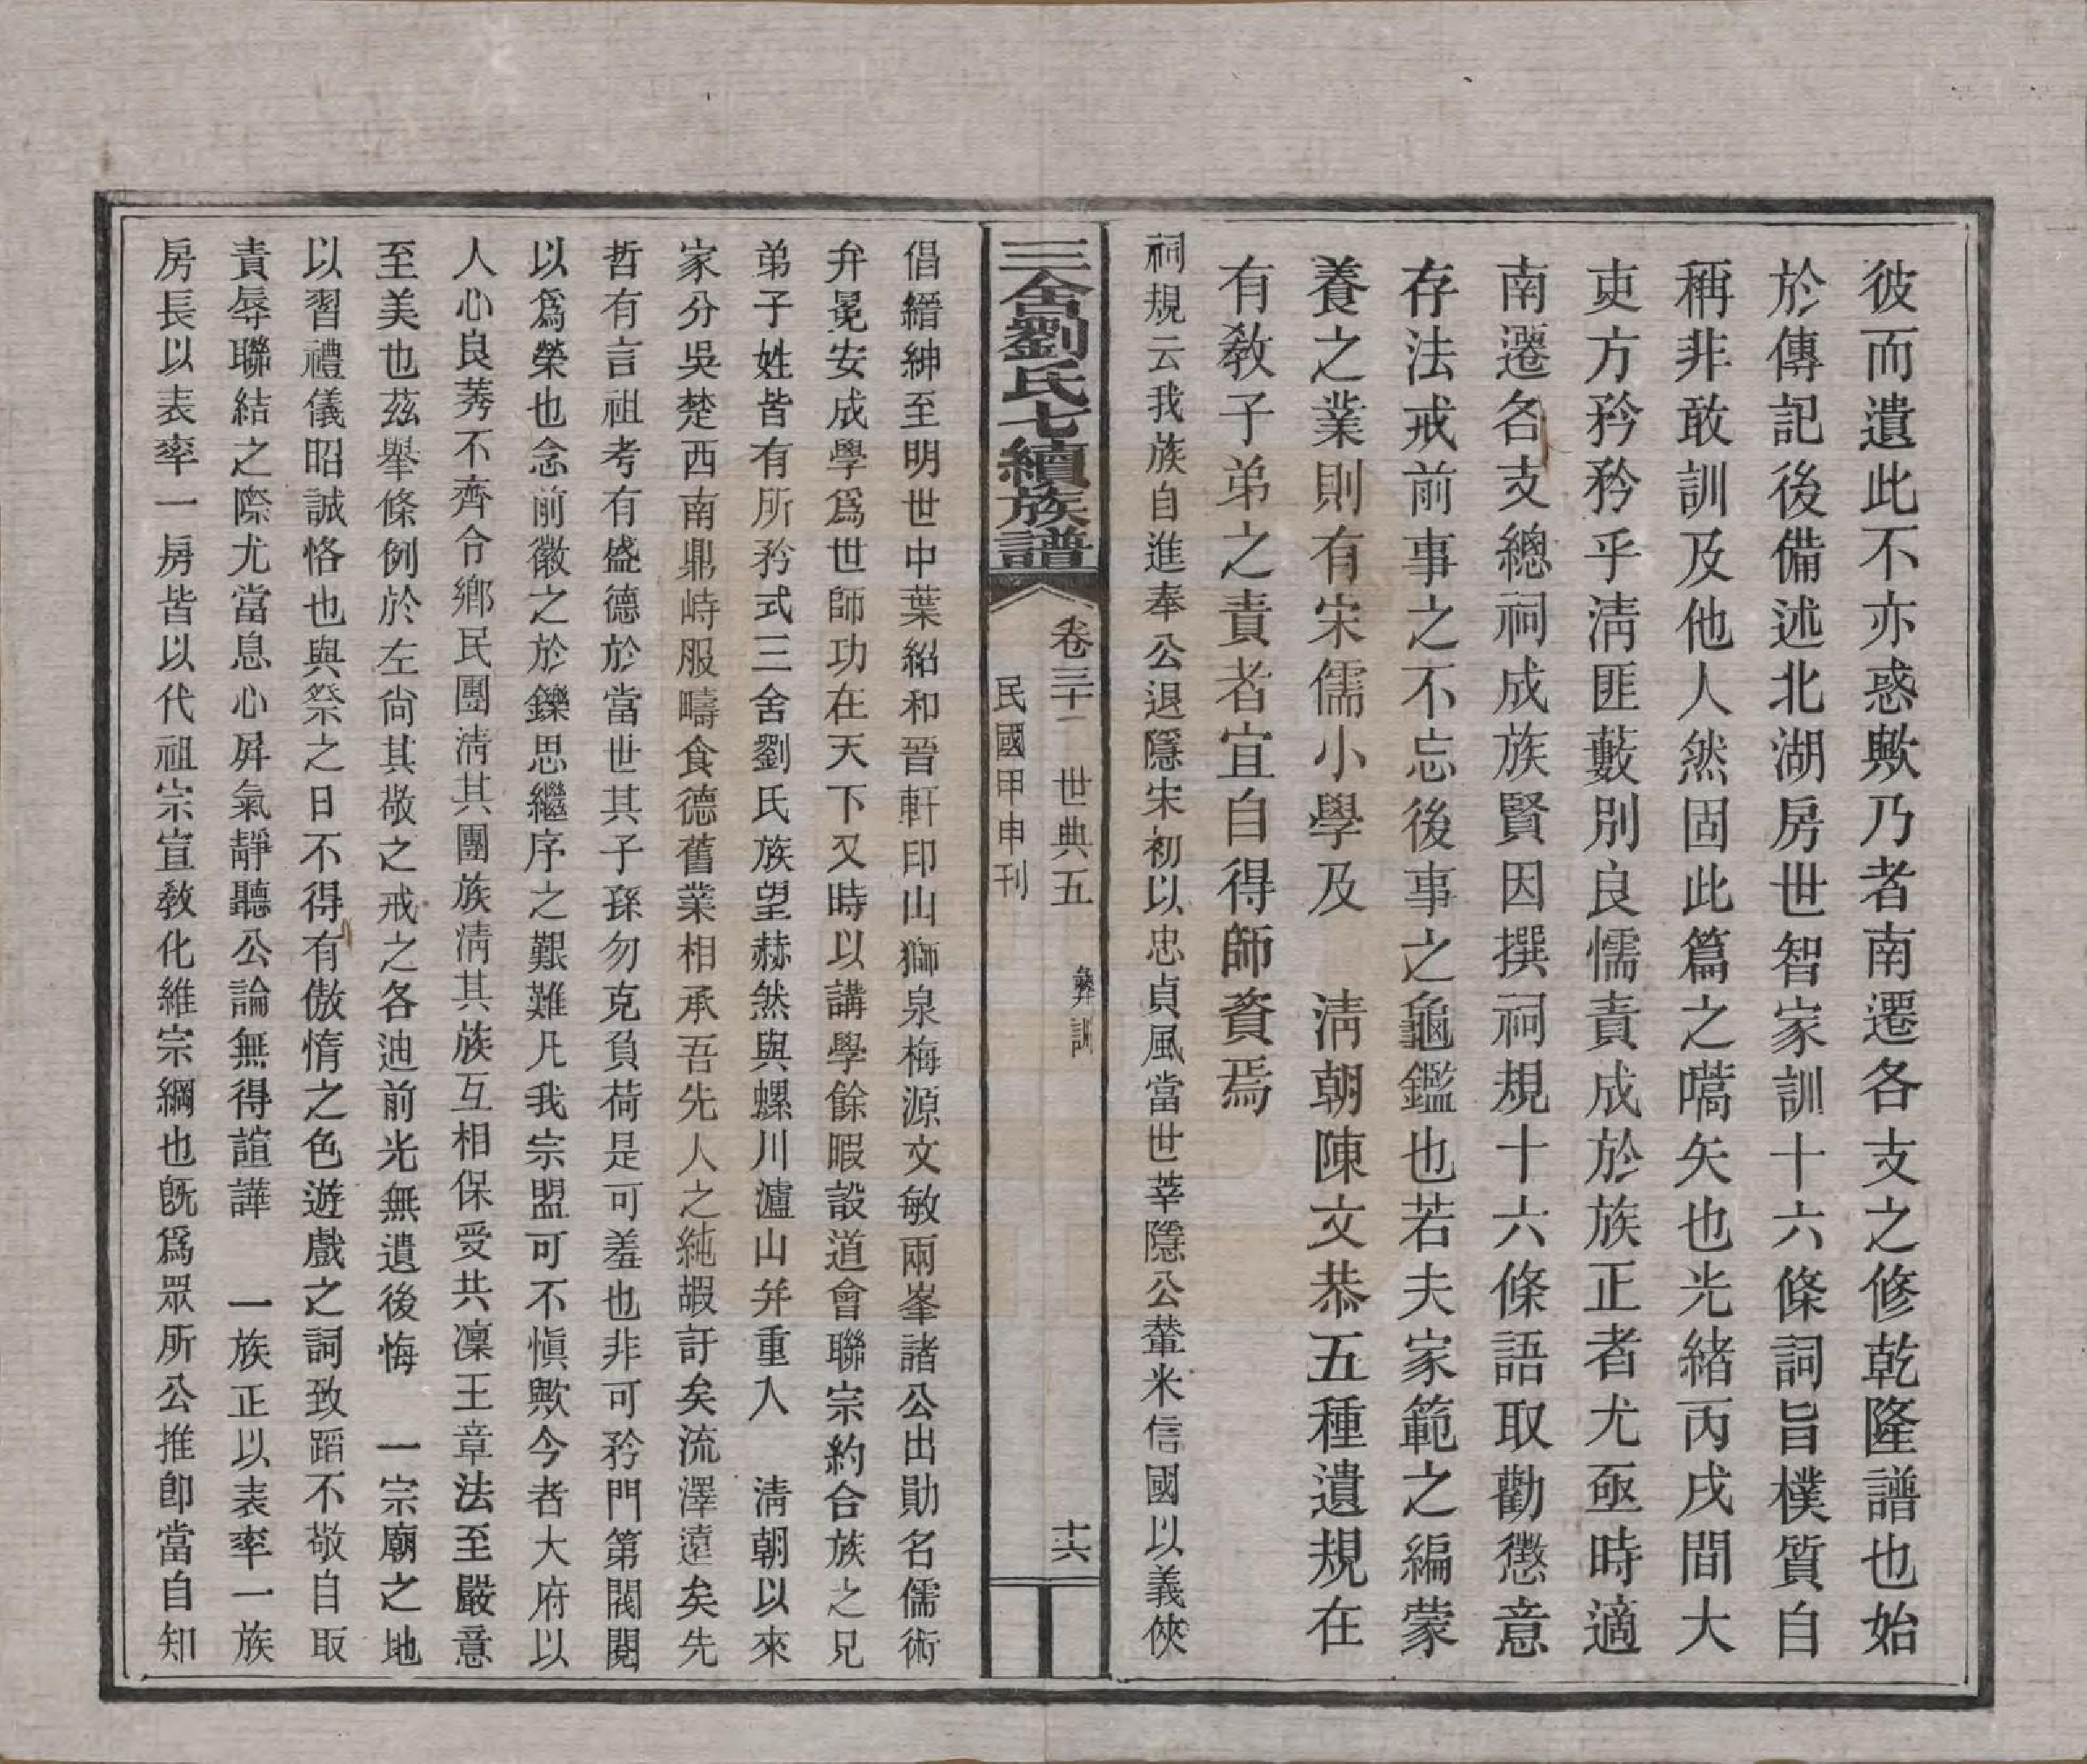 彼而遺此不亦惑歟乃者南遷各支之修乾隆譜也始
於傳記後備述北湖房世智家訓十六條詞旨樸質自
稱非敢訓及他人然固此篇之嚆矢也光緒丙戌間大
吏方矜矜乎淸匪藪別良懦責成於族正者尤亟時適
南遷各支總祠成族賢因撰祠規十六條語取勸懲意
存法戒前事之不忘後事之龜鑑也若夫家範之編蒙
養之業則有宋儒小學及　淸朝陳文恭五種遺規在
有敎子弟之責者宜自得師資焉
祠規云我族自進奉公退隱宋初以忠貞風當世莘隱公輦米信國以義俠
三舍劉氏七續族譜
卷三十一　世典五　彝訓　十六
民國甲申刊
倡縉紳至明世中葉紹和晉軒印山獅泉梅源文敏兩峯諸公出勛名儒術
弁冕安成學爲世師功在天下又時以講學餘暇設道會聯宗約合族之兄
弟子姓皆有所矜式三舍劉氏族望赫然與螺川瀘山并重入　淸朝以來
家分吳楚西南鼎峙服疇食德舊業相承吾先人之純嘏訏矣流澤遠矣先
哲有言祖考有盛德於當世其子孫勿克負荷是可羞也非可矜門第閥閱
以爲榮也念前徽之於鑠思繼序之艱難凡我宗盟可不愼歟今者大府以
人心良莠不齊令鄉民團淸其團族淸其族互相保受共凜王章法至嚴意
至美也茲舉條例於左尙其敬之戒之各迪前光無遺後悔　一宗廟之地
以習禮儀昭誠恪也與祭之日不得有傲惰之色遊戲之詞致蹈不敬自取
責辱聯結之際尤當息心屛氣靜聽公論無得諠譁　一族正以表率一族
房長以表率一房皆以代祖宗宣敎化維宗綱也旣爲眾所公推卽當自知